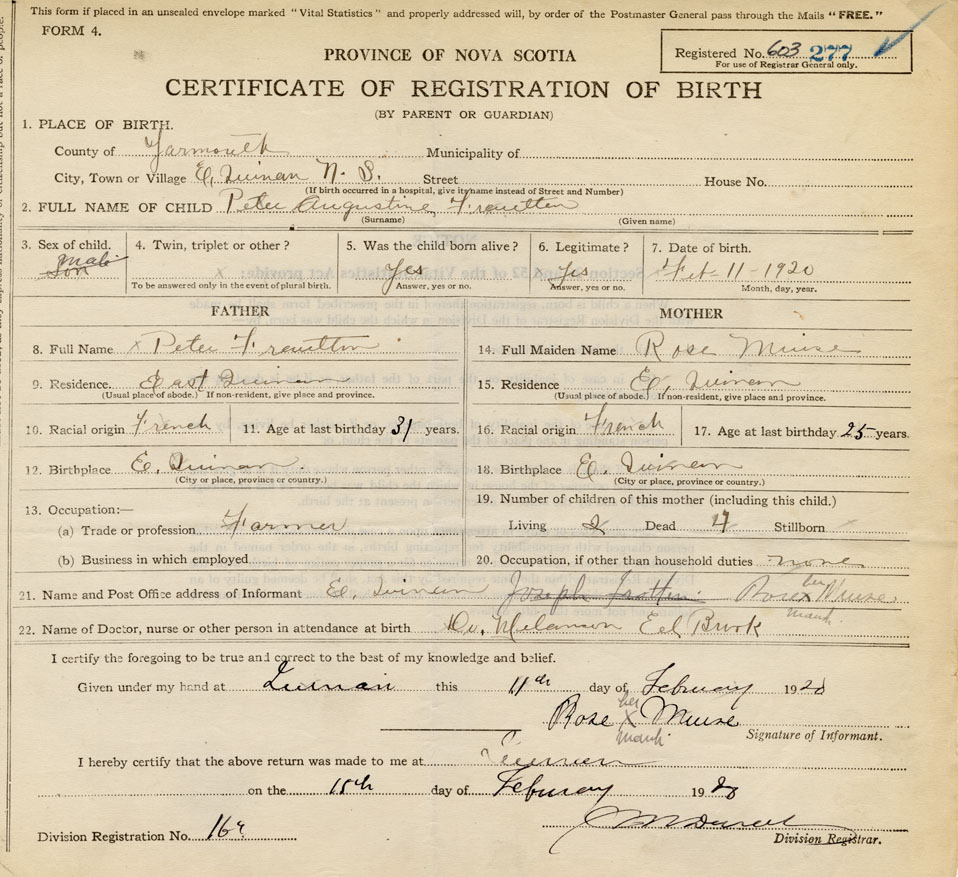 This form if placed in an unsealed envelope marked "Vital Statistics" and properly addressed will, by order of the Postmaster General pass through the Mails "FREE."
FORM 4.
Registered No. 603 277
For use of Registrar General only.
PROVINCE OF NOVA SCOTIA
CERTIFICATE OF REGISTRATION OF BIRTH
(BY PARENT OR GUARDIAN)
1. PLACE OF BIRTH.
County of Yarmouth Municipality of
City, Town or Village E, Quinan N. S. Street House No.
(If birth occurred in a hospital, give its name instead of Street and Number)
2. FULL NAME OF CHILD Peter Augustine
(Surname) (Given name)
3. Sex of child. 4. Twin, triplet or other? 5. Was the child born alive? 6. Legitimate? 7. Date of birth.
male Son x Yes x Yes Feb-11-1920
To be answered only in the event of plural birth. Answer, yes or no. Answer, yes or no. Month, day, year.
FATHER MOTHER
8. Full Name x Peter 14. Full Maiden Name Rose Muise
9. Residence. East Quinan 15. Residence E, Quinan
(Usual place of abode.) If non-resident, give place and province. (Usual place of abode.) If non-resident, give place and province.
10. Racial origin French 11. Age at last birthday 31 years. 16. Racial origin French 17. Age at last birthday 25 years.
12. Birthplace E. Quinan. 18. Birthplace E, Quinan
(City or place, province or country.) (City or place, province or country.)
13. Occupation:— 19. Number of children of this mother (including this child.)
(a) Trade or profession Farmer Living 2 Dead 4 Stillborn
(b) Business in which employed 20. Occupation, if other than household duties none
21. Name and Post Office address of Informant E, Quinan Joseph Rose her x Muise mark
22. Name of Doctor, nurse or other person in attendance at birth Dr. Melanson Eel Brook
I certify the foregoing to be true and correct to the best of my knowledge and belief.
Given under my hand at Quinan this 11th day of February 1920
Rose her x Muise mark
Signature of Informant.
I hereby certify that the above return was made to me at Quinan
on the 15th day of February 1920
Division Registration No.
Division Registrar.